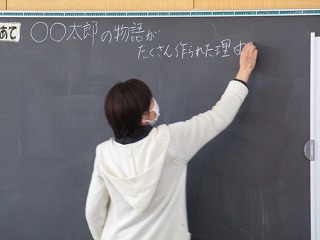 めあて
〇〇太郎の物語が
たくさん作られた理由